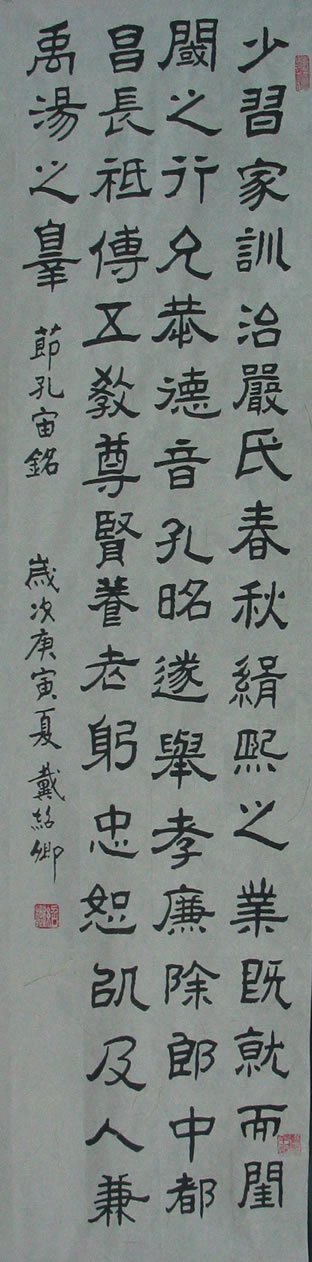 少習家訓治嚴氏春秋緝熙之業既就而閨
閾之行允恭德音孔昭遂舉孝廉除郎中都
昌長祗傅五教尊賢養老躬忠恕以及人兼
禹湯之辠 節孔宙銘 歲次庚寅夏 戴紹卿